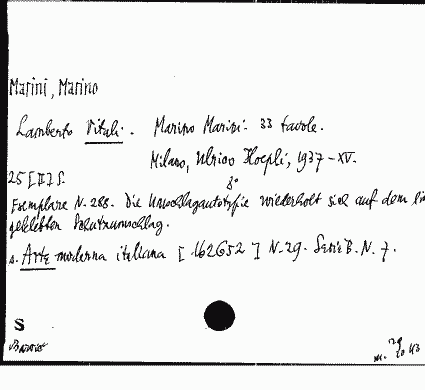 Marini, Marino
Lamberto Vitali. Marino Marini. 33 tavole.
Milano, Ulrico Hoepli, 1937-XV.
25 [II] S. 8°
Exemplare N. 288. Die Umschlagautotypie wiederholt sich auf dem
geklebten Schutzumschlag.
s. Arte moderna italiana [162652] N. 29. Serie B. N. 7.
S